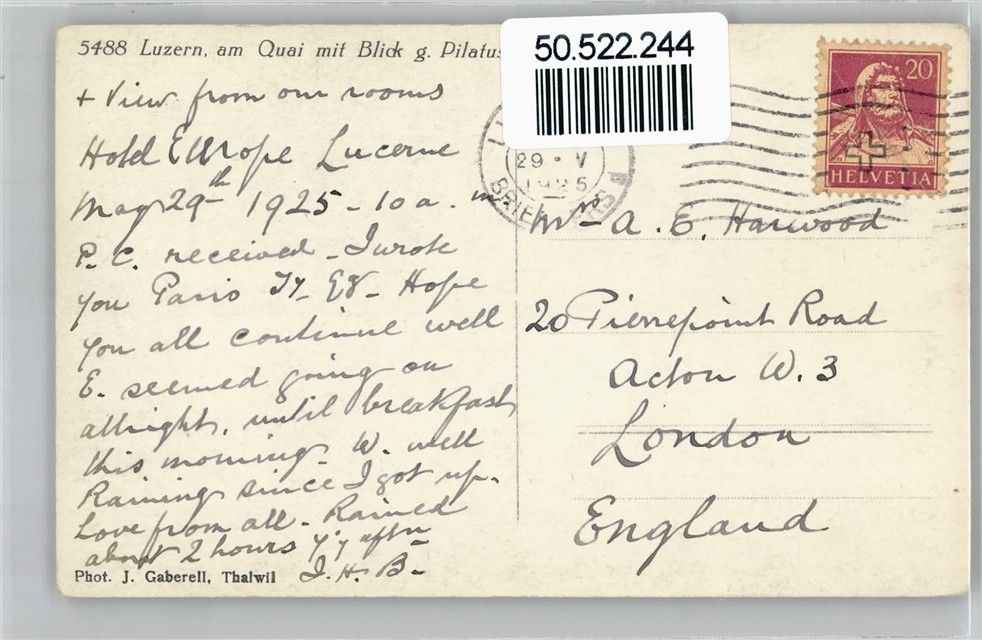 5488 Luzern, am Quai mit Blick g. Pilatus
50.522.244
20
HELVETIA
29 · V
1925
BRIEF
+ View from our rooms
Hotel Europe Lucerne
May 29th 1925 - 10 a. m
P. C. received - I wrote
you Paris - Hope
you all continue well
E. seemed going on
allright, until breakfast
this morning. W. well
Raining since I got up.
Love from all - Rained
about 2 hours aftn
J. H. B-
Phot. J. Gaberell, Thalwil
Mrs A. E. Harwood
20 Pierrepoint Road
Acton W. 3
London
England